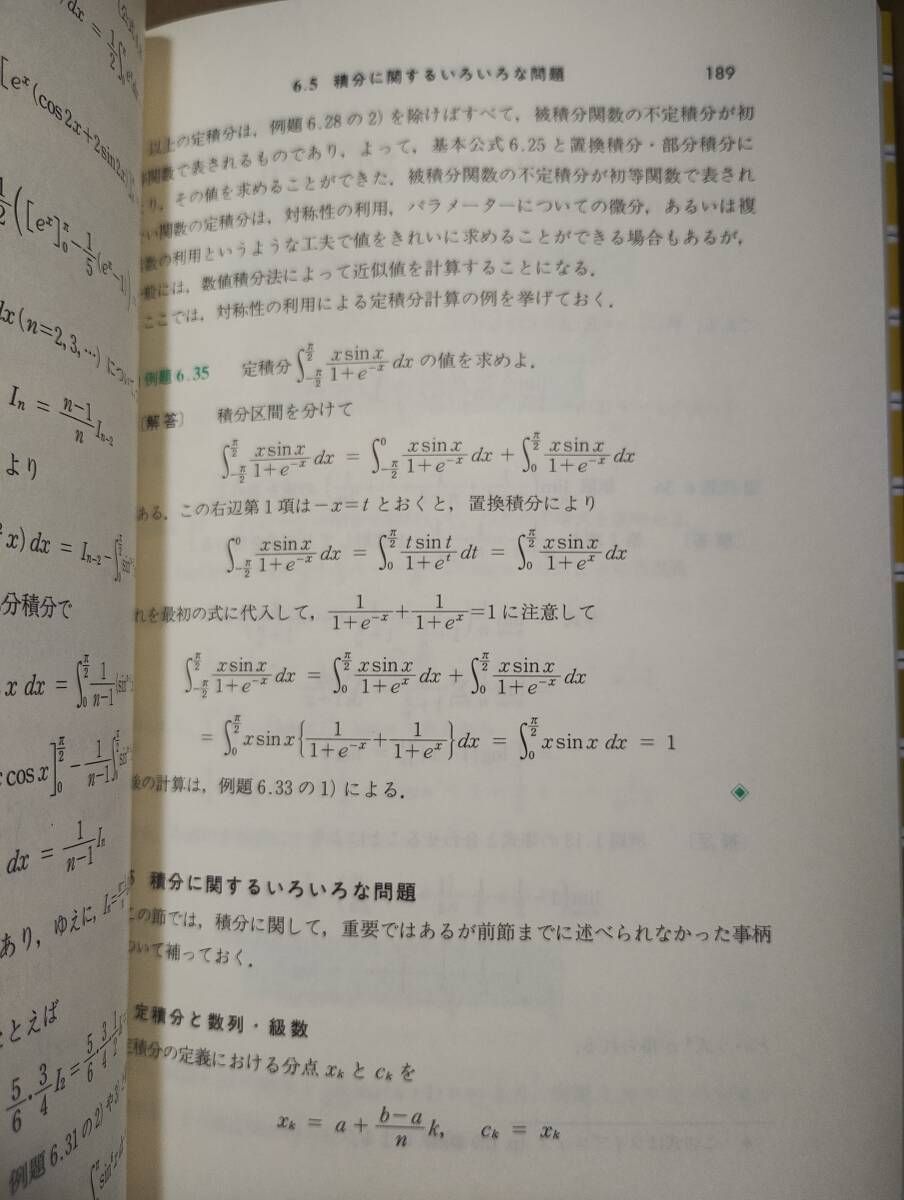 dx = \frac{1}{2}\int
[e^x(cos2x+2sin2x)]
\frac{1}{2}([e^x]_0^π - \frac{1}{5}(e^x-1))
dx(n=2,3,…)
I_n = \frac{n-1}{n}I_{n-2}
より
x)dx = I_{n-2} -
分積分で
x dx = \int_0^{\frac{π}{2}} \frac{1}{n-1}
cos x]_0^{\frac{π}{2}} - \frac{1}{n-1}\int_0^{\frac{π}{2}}
dx = \frac{1}{n-1}I_n
あり，ゆえに，
とえば
\frac{5}{6}・\frac{3}{4}I_2 = \frac{5}{6}・\frac{3}{4}・\frac{1}{2}
例題6.31の2)や
6.5 積分に関するいろいろな問題 189
以上の定積分は，例題6.28の2)を除けばすべて，被積分関数の不定積分が初
関数で表されるものであり，よって，基本公式6.25と置換積分・部分積分に
り，その値を求めることができた．被積分関数の不定積分が初等関数で表され
い関数の定積分は，対称性の利用，パラメーターについての微分，あるいは複
数の利用というような工夫で値をきれいに求めることができる場合もあるが，
般には，数値積分法によって近似値を計算することになる．
ここでは，対称性の利用による定積分計算の例を挙げておく．
例題6.35 定積分 \int_{-\frac{π}{2}}^{\frac{π}{2}} \frac{x sin x}{1+e^{-x}} dx の値を求めよ．
〔解答〕 積分区間を分けて
\int_{-\frac{π}{2}}^{\frac{π}{2}} \frac{x sin x}{1+e^{-x}} dx = \int_{-\frac{π}{2}}^{0} \frac{x sin x}{1+e^{-x}} dx + \int_0^{\frac{π}{2}} \frac{x sin x}{1+e^{-x}} dx
ある．この右辺第1項は −x=t とおくと，置換積分により
\int_{-\frac{π}{2}}^{0} \frac{x sin x}{1+e^{-x}} dx = \int_0^{\frac{π}{2}} \frac{t sin t}{1+e^t} dt = \int_0^{\frac{π}{2}} \frac{x sin x}{1+e^x} dx
れを最初の式に代入して，\frac{1}{1+e^{-x}}+\frac{1}{1+e^x}=1に注意して
\int_{-\frac{π}{2}}^{\frac{π}{2}} \frac{x sin x}{1+e^{-x}} dx = \int_0^{\frac{π}{2}} \frac{x sin x}{1+e^x} dx + \int_0^{\frac{π}{2}} \frac{x sin x}{1+e^{-x}} dx
= \int_0^{\frac{π}{2}} x sin x {\frac{1}{1+e^{-x}}+\frac{1}{1+e^x}}dx = \int_0^{\frac{π}{2}} x sin x dx = 1
後の計算は，例題6.33の1)による．
積分に関するいろいろな問題
この節では，積分に関して，重要ではあるが前節までに述べられなかった事柄
ついて補っておく．
定積分と数列・級数
定積分の定義における分点 x_k と c_k を
x_k = a + \frac{b-a}{n}k, c_k = x_k